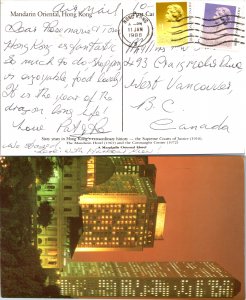 Air Mail To
Mandarin Oriental, Hong Kong
Dear Rosemary & Tom
Hong Kong is fantastic
so much to do shopping
is enjoyable food lovely
It is the year of the
dragon long life
Love
11 JAN
1988
Craigreolis Drive
West Vancouver
B.C.
Canada
Sixty years in Hong Kong's extraordinary history — the Supreme Court of Justice (1910),
The Mandarin Hotel (1963) and the Connaught Centre (1972)
A Mandarin Oriental Hotel